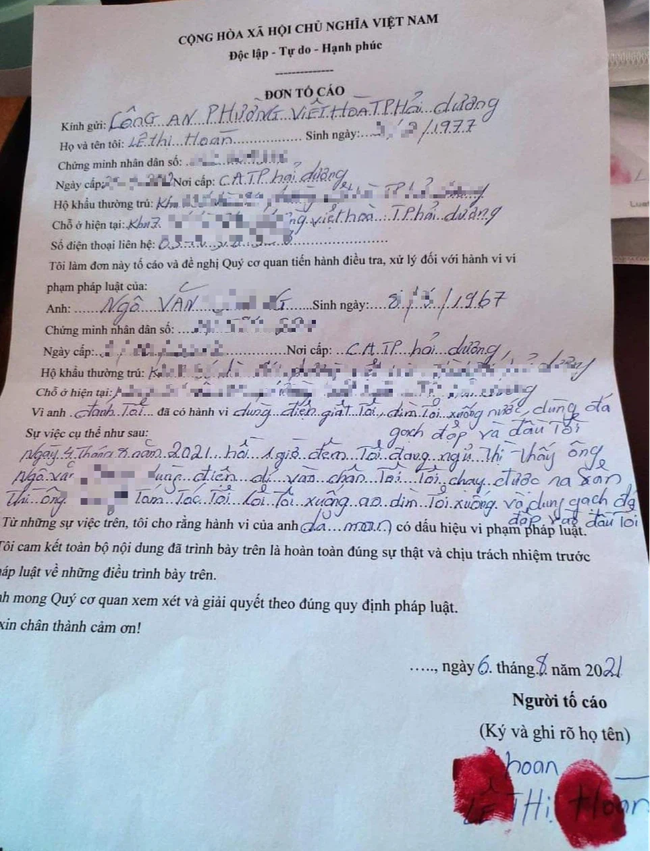 CỘNG HÒA XÃ HỘI CHỦ NGHĨA VIỆT NAM
Độc lập - Tự do - Hạnh phúc
DƠN TỐ CÁO
Kính gửi: CÔNG AN PHƯỜNG VIỆT HOÀ TP Hải dương
Họ và tên tôi: LÊ thị Hoan Sinh ngày: /1977
Chứng minh nhân dân số:
Ngày cấp: Nơi cấp: C.A.TP hải dương
Hộ khẩu thường trú: Khu TP hải dương
Chỗ ở hiện tại: Khu 7 việt hoà TP hải dương
Số điện thoại liên hệ: 03
Tôi làm đơn này tố cáo và đề nghị Quý cơ quan tiến hành điều tra, xử lý đối với hành vi vi
phạm pháp luật của:
Anh: NGÔ VĂN Sinh ngày: /1967
Chứng minh nhân dân số:
Ngày cấp: Nơi cấp: C.A.TP hải dương
Hộ khẩu thường trú:
Chỗ ở hiện tại:
Vì anh đánh Tôi đã có hành vi dùng điện giật Tôi, dìm Tôi xuống nước, dung đá
gạch đập và đầu Tôi
Sự việc cụ thể như sau:
Ngày 4 Tháng 8 năm 2021 hồi 1 giờ đêm Tôi đang ngủ Thì Thấy ông
Ngô vă điện dí vào chân Tôi Tôi chạy được ra sân
Thì ông Tóm Tóc Tôi lôi Tôi xuống ao dìm Tôi xuống và dung gạch đá
đập vào đầu Tôi
Từ những sự việc trên, tôi cho rằng hành vi của anh dã man có dấu hiệu vi phạm pháp luật.
Tôi cam kết toàn bộ nội dung đã trình bày trên là hoàn toàn đúng sự thật và chịu trách nhiệm trước
háp luật về những điều trình bày trên.
nh mong Quý cơ quan xem xét và giải quyết theo đúng quy định pháp luật.
xin chân thành cảm ơn!
....., ngày 6 tháng 8 năm 2021
Người tố cáo
(Ký và ghi rõ họ tên)
hoan
LÊ THị Hoan